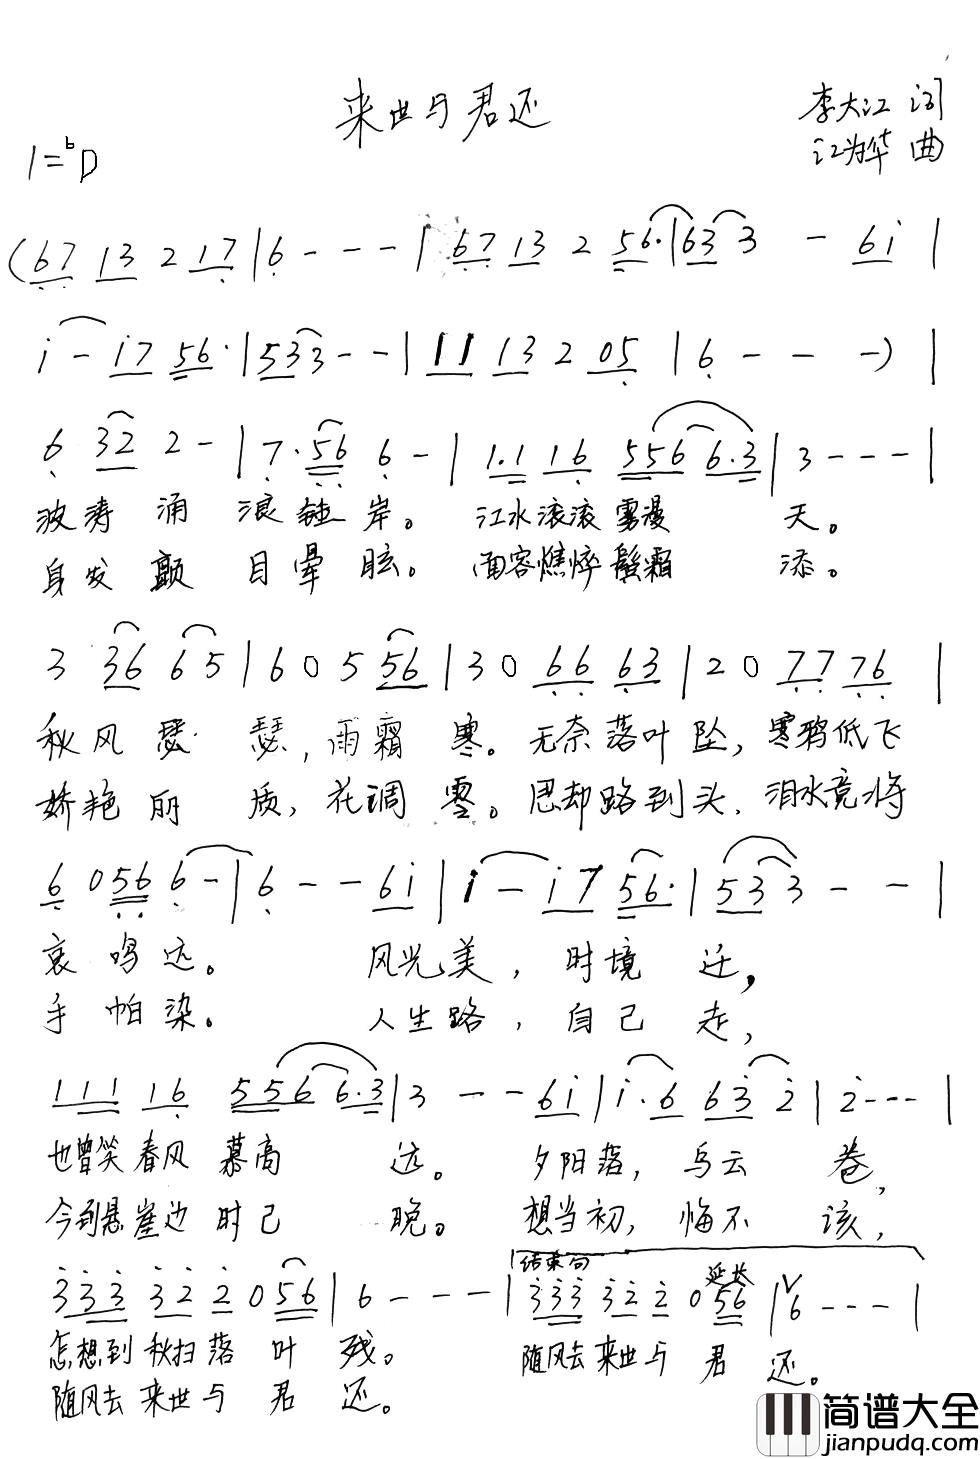 来世与君还
李大江 词
江为华 曲
1=bD
(67 13 2 17 | 6 - - - | 67 13 2 56. | 63 3 - 61 |
1 - 17 56. | 533 - - | 11 13 2 05 | 6 - - - ) |
6 32 2 - | 7.56 6 - | 1.1 16 556 6.3 | 3 - - - |
波涛涌 浪 岸。 江水滚滚雾漫 天。
身发颤 目晕眩。 面容憔悴鬓霜 添。
3 36 65 | 6 0 5 56 | 3 0 66 63 | 2 0 77 76 |
秋风瑟 瑟,雨霜 寒。无奈落叶坠,寒鸦低飞
娇艳丽 质,花调 零。思却路到头,泪水竟将
6 0 56 6 - | 6 - - 61 | 1 - 17 56. | 533 - - |
哀鸣远。 风光美,时境 迁,
手帕染。 人生路,自己 走,
111 16 556 6.3 | 3 - - 61 | 1.6 63 2 | 2 - - - |
也曾笑春风慕高 远。 夕阳落,乌云 卷,
今到悬崖边时已 晚。 想当初,悔不 该,
结束句
延长
333 32 2 0 56 | 6 - - - | 333 32 2 0 56 | 6 - - - |
怎想到秋扫落 叶 残。 随风去来世与 君 还。
随风去来世与 君 还。
简谱大全
jianpudq.com